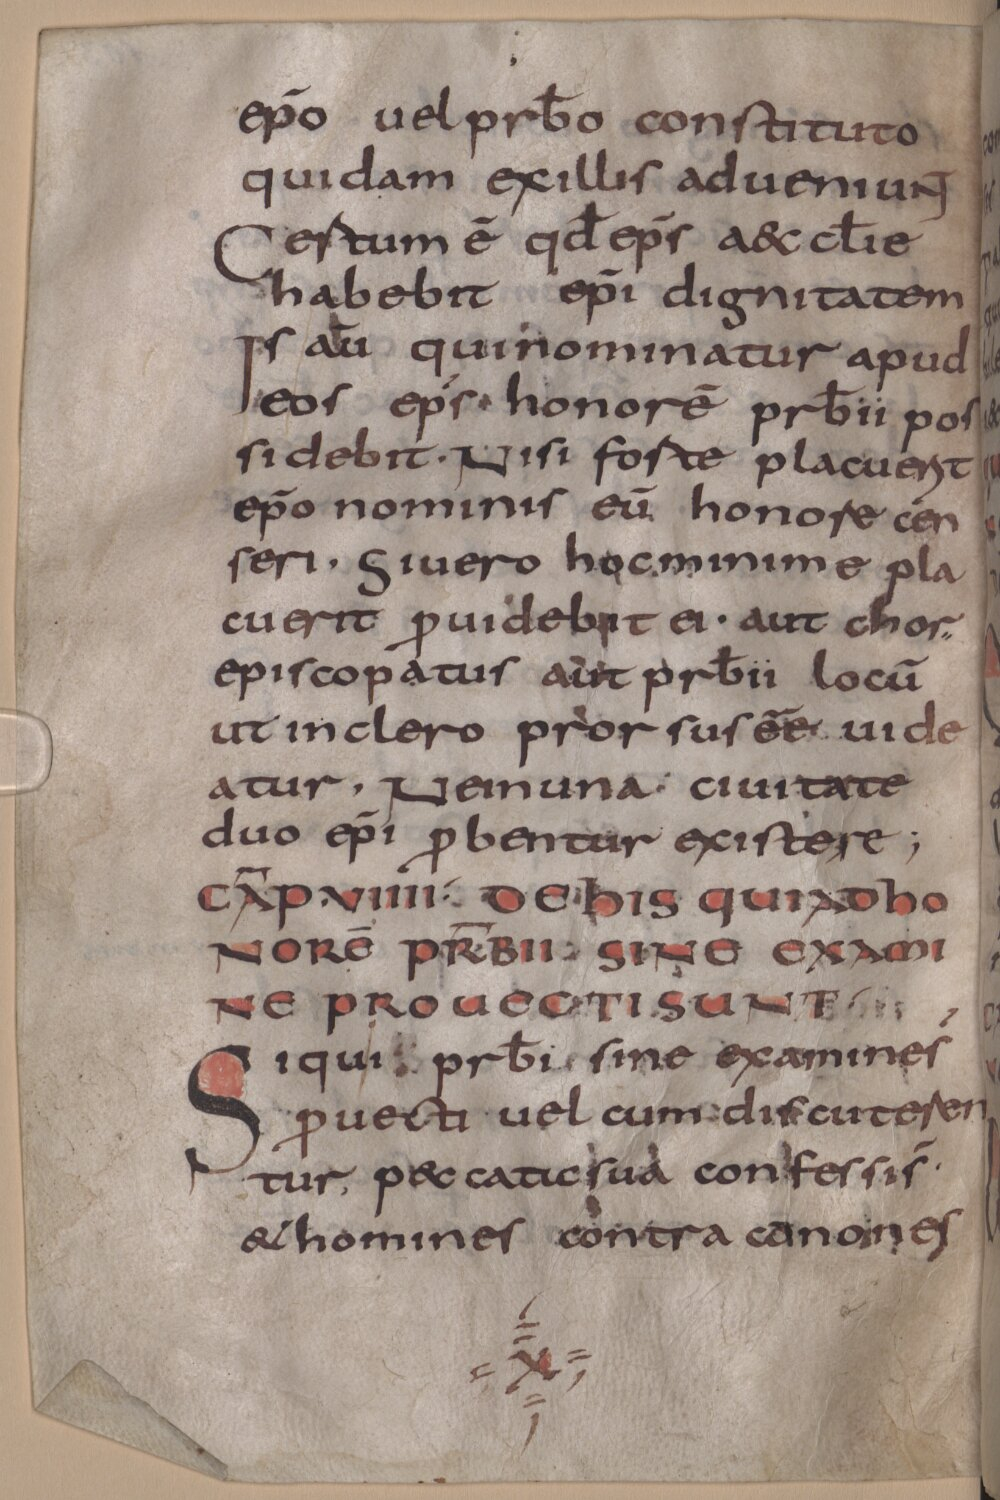 ep̄o uel prb̄o constituto
quidam exillis adueniunt
Certum ē qd̄ ep̄s a&ccl̄ie
habebit ep̄i dignitatem
Is aū qui nominatur apud
eos ep̄s· honorē prb̄ii pos
sidebit· Nisi forte placuerit
ep̄o nominis eū honore cen
seri· Si uero hoc minime pla
cuerit ꝓuidebit ei· aut chor
episcopatus aut prb̄ii locū
ut in clero prorsus ēe uide
atur· Ne in una ciuitate
duo ep̄i ꝓbentur existere;
CĀP· VIIII· DE HIS QUI AD HO
NORĒ PR̄BII· SINE EXAMI
NE PROUECTI SUNT
Si qui prb̄i sine examines
ꝓuecti uel cum discuteren
tur p&catic sua confessis·
& homines contra canones
x̄